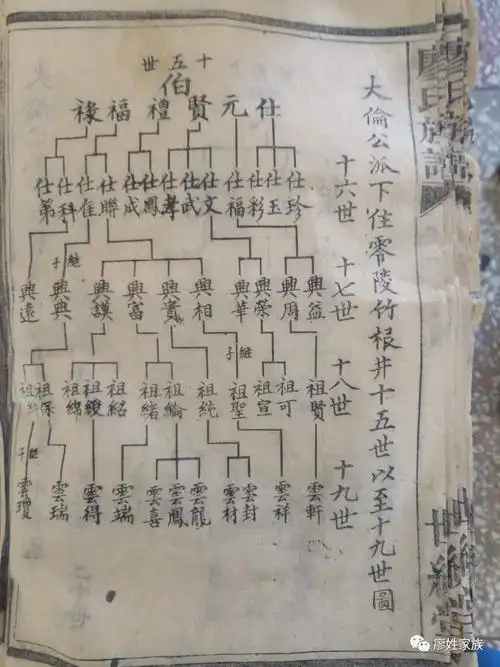 廖氏族譜
世綵堂
大倫公派下住零陵竹根井十五世以至十九世圖
十五世
伯
仕 元 賢 禮 福 祿
十六世
仕珍 仕玉 仕彩 仕福 仕文 仕武 仕孝 仕鳳 仕成 仕聯 仕佳 仕科 仕第
十七世
興益 興周 興榮 興華 興相 興賓 興富 興謨 興典 興遠
繼子
十八世
祖賢 祖可 祖宣 祖聖 祖純 祖綸 祖緒 祖紹 祖綬 祖綿
繼子
十九世
雲軒 雲祥 雲封 雲材 雲龍 雲鳳 雲喜 雲端 雲得 雲瑞 雲瓊
繼子
二十世
廖姓家族